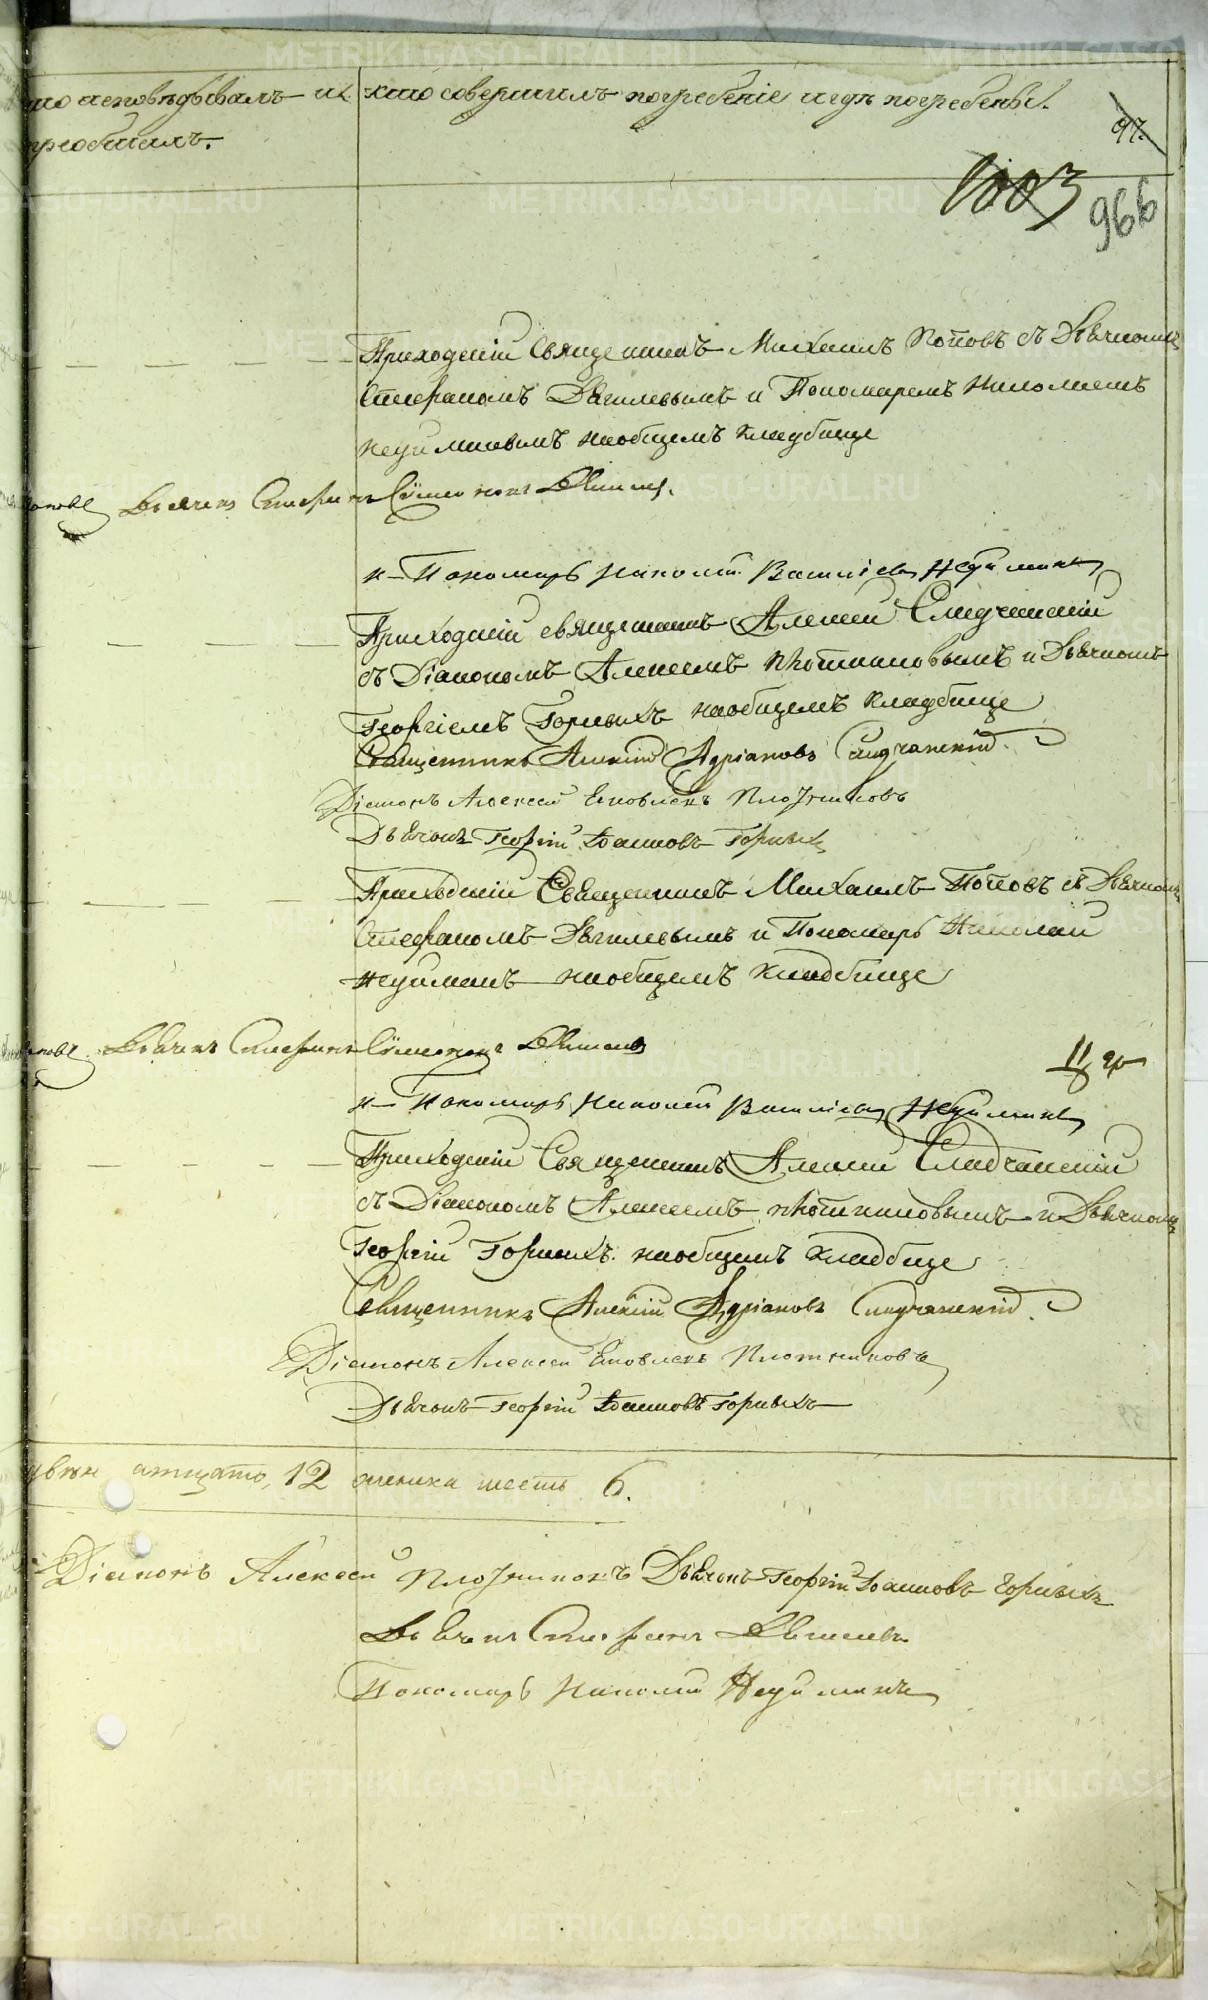 кто исповѣдывалъ и кто совершилъ погребеніе и гдѣ погребены.
пріобщилъ.
97.
1003
966
Приходскій священникъ Михаилъ Поповъ съ Дьячкомъ
Стефаномъ Двинлевымъ и Пономаремъ Николаемъ
Неуйминымъ на общемъ кладбище
Дьячекъ Стефанъ Сѵмеоновъ
и Пономарь Николай Васильевъ Неуйминъ
Приходскій священникъ Алексѣй Слидчанскій
съ Діакономъ Алексѣемъ Плотниковымъ и Дьячкомъ
Георгіемъ Горныхъ на общемъ кладбище
Священникъ Алексій Адріановъ Слидчанскій
Діаконъ Алексей Яковлевъ Плотниковъ
Дьячокъ Георгій Іоанновъ Горныхъ
Приходскій Священникъ Михаилъ Поповъ съ Дьячкомъ
Стефаномъ и Пономарь Николай
Неуйминъ на общемъ кладбище
Дьячекъ Стефанъ Сѵмеоновъ
и Пономарь Николай Васильевъ Неуйминъ
Приходскій Священникъ Алексѣй Слидчанскій
съ Діакономъ Алексѣемъ Плотниковымъ и Дьячкомъ
Георгій Горныхъ на общемъ кладбище
Священникъ Алексій Адріановъ Слидчанскій
Діаконъ Алексей Яковлевъ Плотниковъ
Дьячокъ Георгій Іоанновъ Горныхъ
12 женска шесть 6.
Діаконъ Алексей Плотниковъ Дьячокъ Георгій Іоанновъ Горныхъ
Дьячекъ Стефанъ
Пономарь Николай Неуйминъ
METRIKI.GASO-URAL.RU